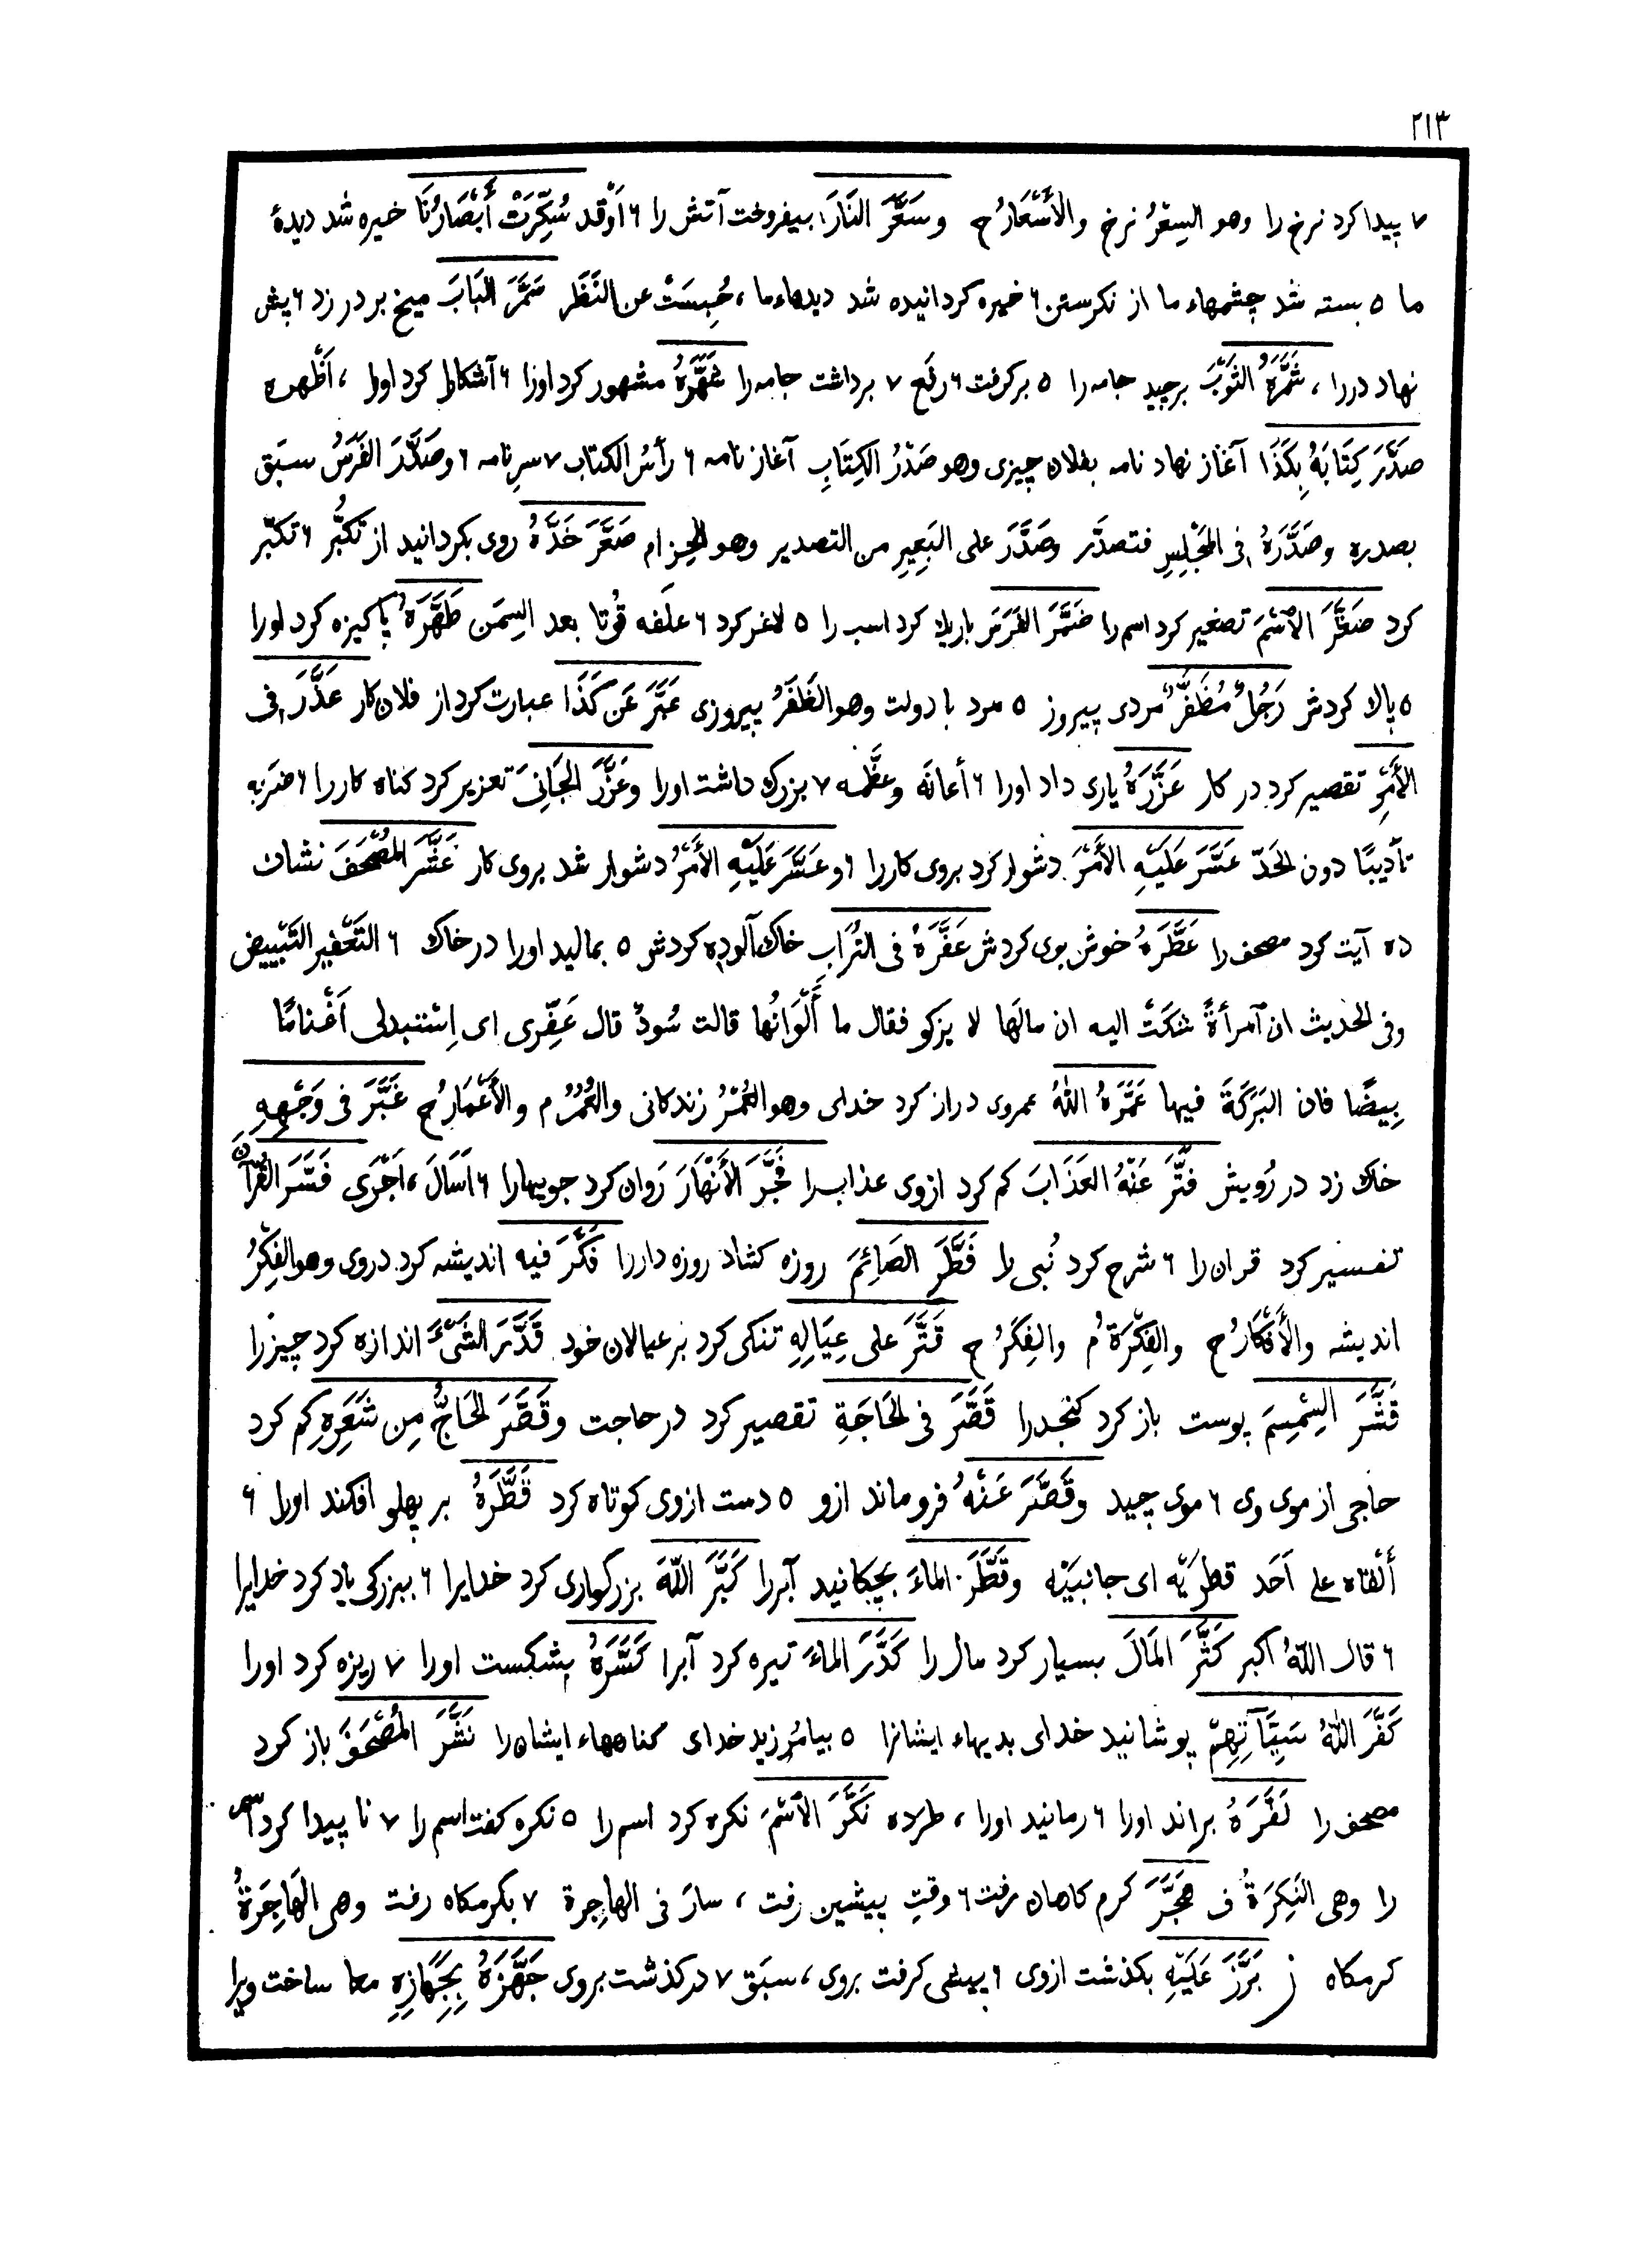 ٢١٣
٧ پیدا کرد نرخ را وهو السِعْرُ نرخ والأَسْعَارُ ج وسَعَّرَ النَّارَ بیفروخت آتش را ۶ اَوْقد سُكِّرَتْ أَبْصَارُنَا خیره شد دیدۀ
ما ۵ بسته شد چشمهاء ما از نکرستن ۶ خیره کردانیده شد دیدهاء ما ، حُبِسَتْ عن النَّظَر سَمَّرَ البَابَ میخ بر در زد ۶ پش
نهاد در را ، شَمَّرَ الثَوْبَ برچید جامه را ۵ برکرفت ۶ رفَع ٧ برداشت جامه را شَهَّرَهُ مشهور کرد اورا ۶ آشکارا کرد اورا ، اَظْهره
صَدَّرَ كِتَابَهُ بِكَذَا آغاز نهاد نامه بفلان چیزی وهو صَدْرُ الكِتَابِ آغاز نامه ۶ رأسُ الكتاب ٧ سرِ نامه ۶ وصَدَّرَ الفَرَسُ سبَق
بصدره وصَدَّرَهُ فی المَجْلِسِ فتصدَّر وصَدَّرَ علی البَعِیرِ من التصدیر وهو الحِزام صَعَّرَ خَدَّهُ روی بکردانید از تَكبُّر ۶ تکبّر
کرد صَغَّرَ الاٌسْمَ تصغیر کرد اسم را ضَمَّرَ الفَرَسَ باریك کرد اسب را ۵ لاغر کرد ۶ علَفه قُوتا بعد السِمَن طَهَّرَهُ پاکیزه کرد اورا
۵ پالا کردش رَجُلٌ مُظَفَّرٌ مردی پیروز ۵ مرد با دولت وهو الظَفَرُ پیروزی عَبَّرَ عَن كَذَا عبارت کرد از فلان کار عَذَّرَ فی
الأَمْرِ تقصیر کرد در کار عَزَّرَهُ یاری داد اورا ۶ أعانَه وعظَّمه ٧ بزرك داشت اورا وعَزَّرَ الجَانِیَ تعزیر کرد کناه کار را ۶ ضرَبه
تأدیبًا دون الحَدّ عَسَّرَ عَلَیْهِ الأَمْرَ دشوار کرد بروی کار را ۶ وعَسَّرَ عَلَیْهِ الأَمْرُ دشوار شد بروی کار عَشَّرَ المُصْحَفَ نشان
ده آیت کرد مصحف را عَطَّرَهُ خوش بوی کردش عَفَّرَهُ فی التُرَابِ خاك آلوده کردش ۵ بمالید اورا در خاك ۶ التَعْفیر التَبْییض
وفی الحدیث ان آمرأةً شكَتْ الیه ان مالَها لا یزکو فقال ما أَلْوَانُها قالت سُودٌ قال عَفِّری ای اِستبدلی اَغْنامًا
بِیضًا فان البَرَكَةَ فیها عَمَّرَهُ اللهُ عمروی دراز کرد خدای وهو العُمْرُ زندکانی والعُمُرُ م والأَعْمَارُ ج غَبَّرَ فی وَجْهِهِ
خاك زد در رُویش فَتَّرَ عَنْهُ العَذَابَ کم کرد ازوی عذابـرا فَجَّرَ الأَنْهَارَ رَوان کرد جویهارا ۶ اَسَالَ ، اَجْرَی فَسَّرَ القُرْآنَ
تفسیر کرد قران را ۶ شرح کرد نُبی را فَطَّرَ الصَائِمَ روزه کشاد روزه دار را فَكَّرَ فیه اندیشه کرد دروی وهو الفِكْرُ
اندیشه والأَفْكَارُ ج والفِكْرَةُ م والفِكَرُ ج قَتَّرَ علی عِیَالِهِ تنکی کرد بر عیالان خود قَدَّرَ الشَیْءَ اندازه کرد چیز را
قَشَّرَ السِّمْسِمَ پوست باز کرد کنجد را قَصَّرَ فی الحَاجَةِ تقصیر کرد در حاجت وقَصَّرَ الحَاجُّ مِن شَعَرِهِ کم کرد
حاجی از موی وی ۶ موی چید وقَصَّرَ عَنْهُ فرو ماند ازو ۵ دست ازوی کوتاه کرد قَطَّرَهُ بر پهلو افکند اورا ۶
أَلْقاه علی اَحَد قطرَیْه ای جانبَیْه وقَطَّرَ الماءَ بچکانید آبرا كَبَّرَ اللّٰهَ بزرکواری کرد خدایرا ۶ ببزرکی یاد کرد خدایرا
۶ قال اللّٰهُ اکبر كَثَّرَ المَالَ بسیار کرد مال را كَدَّرَ الماءَ تیره کرد آبرا كَسَّرَهُ بشکست اورا ٧ ریزه کرد اورا
كَفَّرَ اللّٰهُ سَیِّآتِهِمْ پوشانید خدای بدیهاء ایشانرا ۵ بیامُرزید خدای کناههاء ایشان را نَشَّرَ المُصْحَفَ باز کرد
مصحف را نَفَّرَهُ براند اورا ۶ رمانید اورا ، طرَده نَكَّرَ الاٌسْمَ نکره کرد اسم را ۵ نکره کفت اسم را ٧ نا پیدا کرد اسم
را وهی النَكِرَةُ ف هَجَّرَ کرم کاهان رفت ۶ وقتِ پیشین رفت ، سارَ فی الهاجِرة ٧ بکرمکاه رفت وهی الهَاجِرَةُ
کرمکاه ز بَرَّزَ عَلَیْهِ بکذشت ازوی ۶ پیشی کرفت بروی ، سبَق ٧ درکذشت بروی جَهَّزَهُ بِجَهَازِهِ مها ساخت ویرا